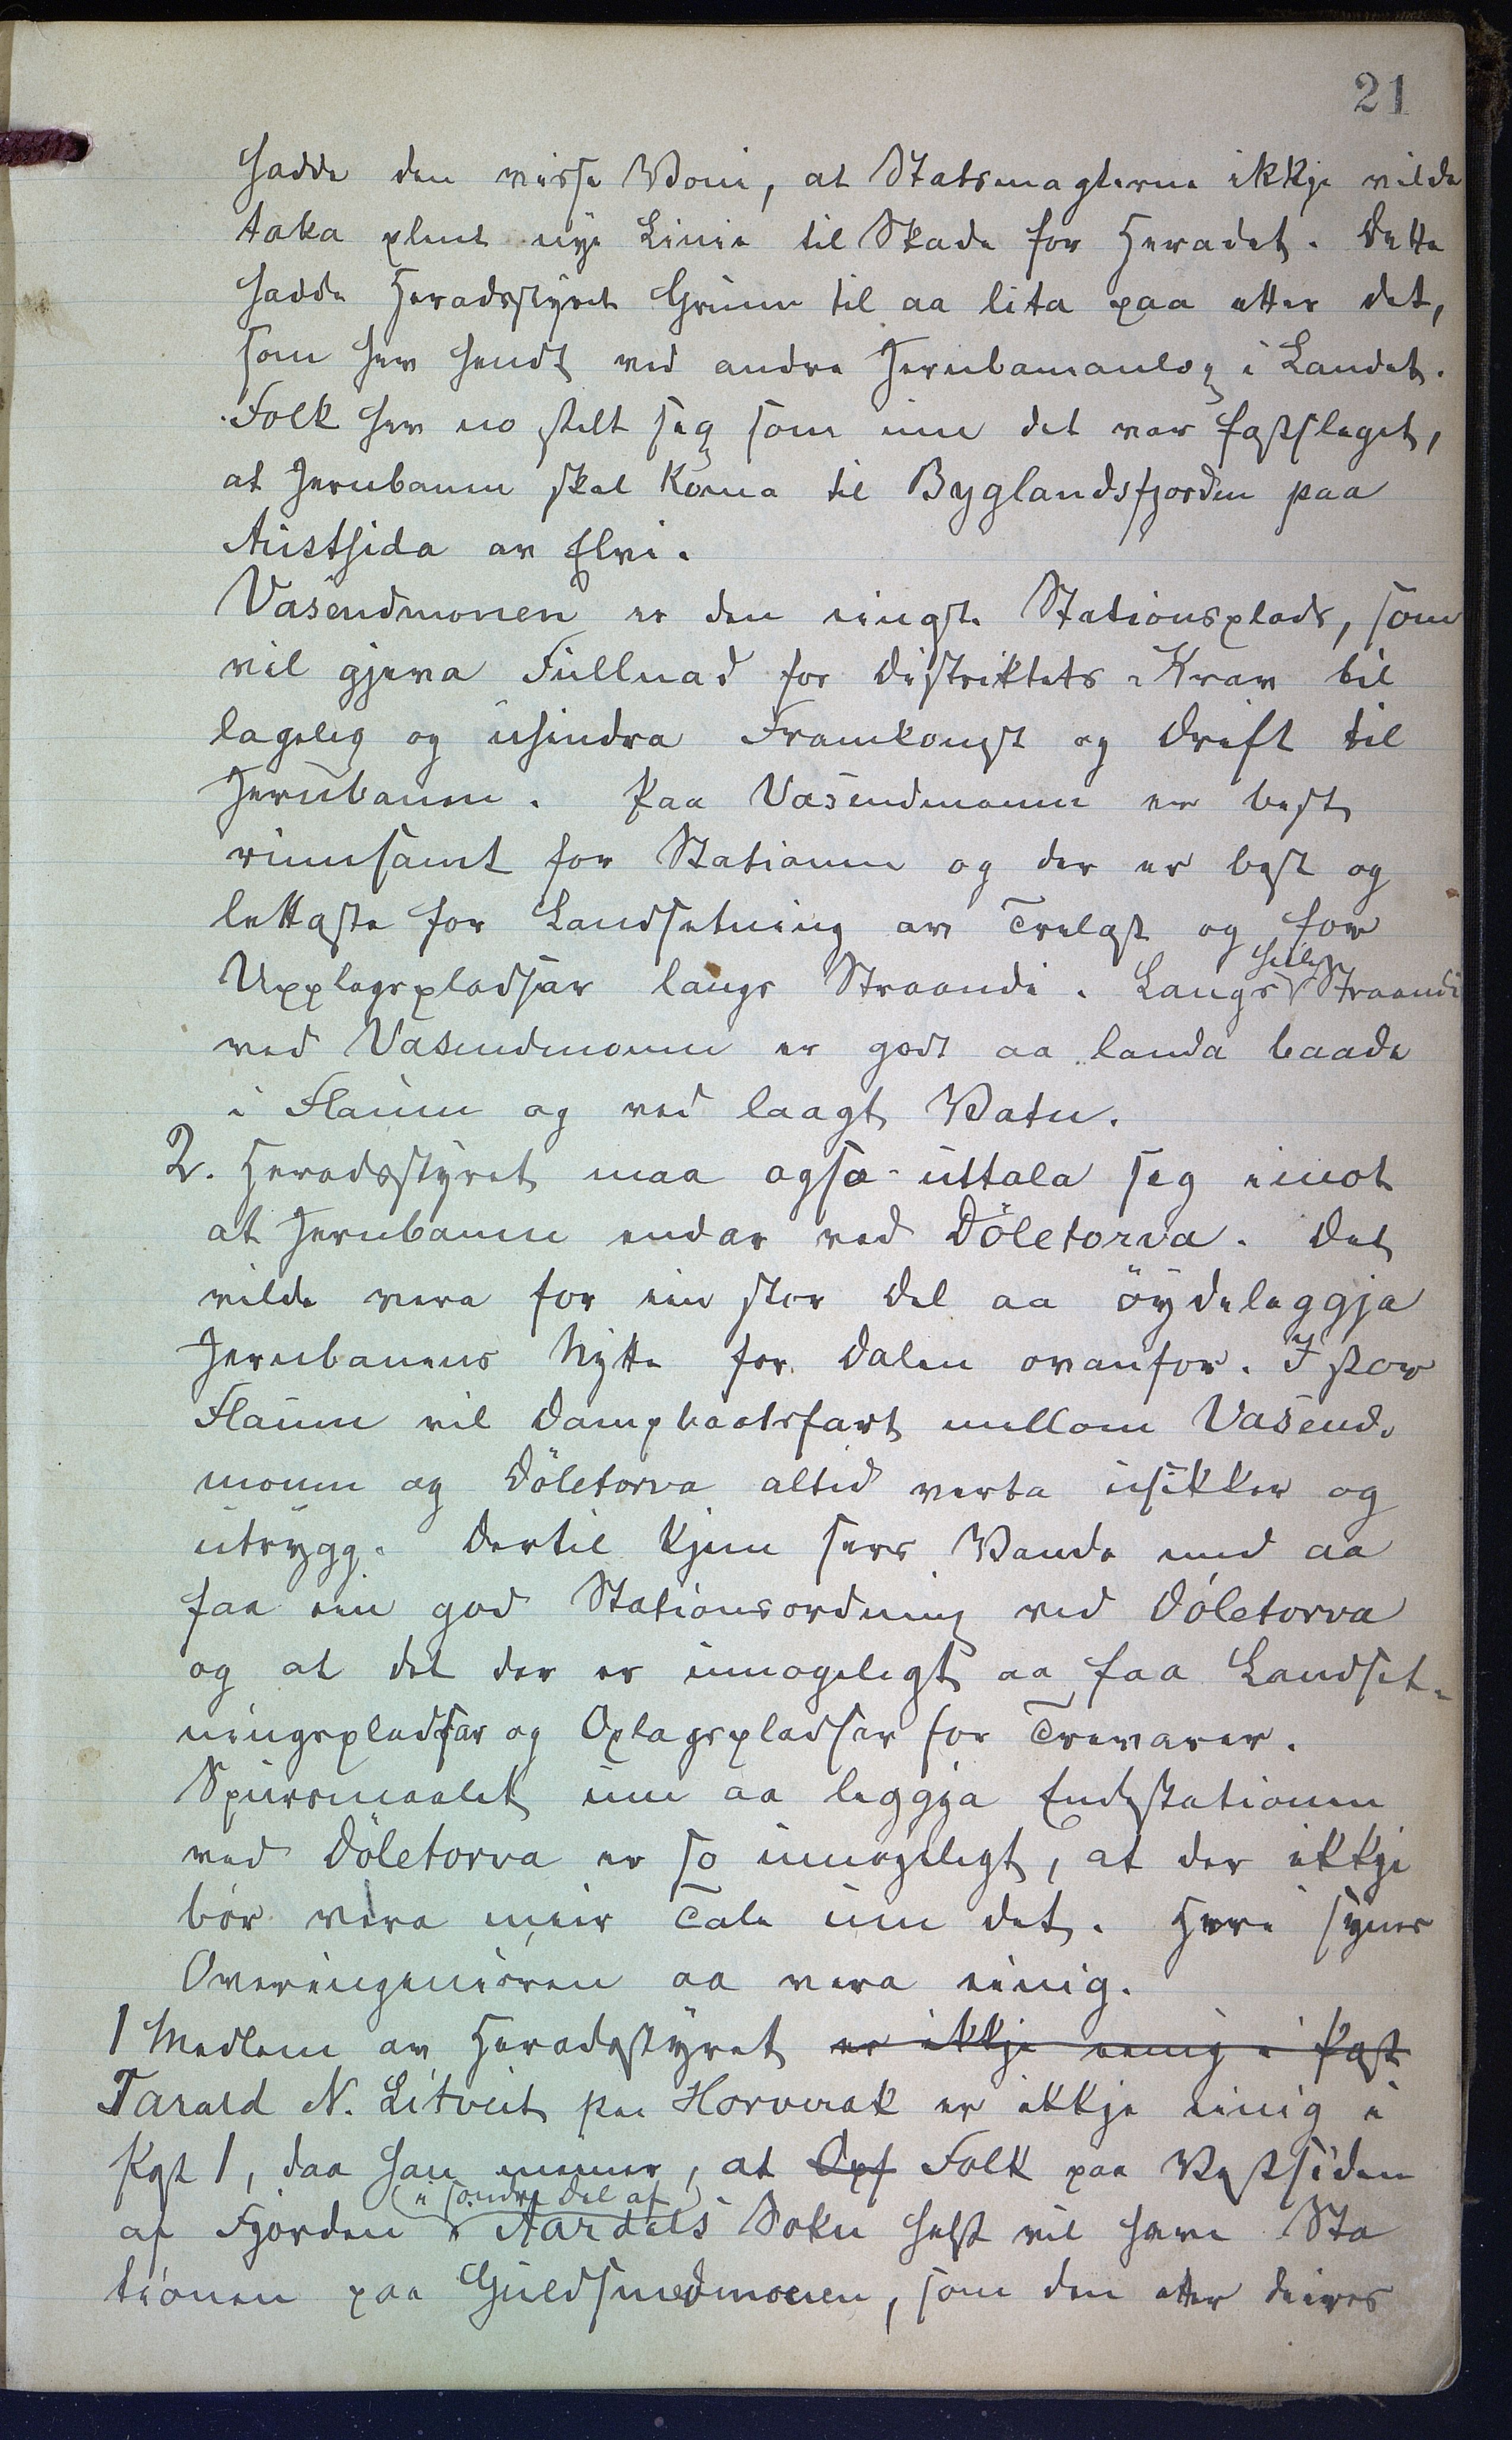 21
hadde den visse Voni, at Statsmagterne ikkje vilde
taka plent nye Linie til Skade for Heradet. Dette
hadde Heradsstyret Grunn til aa lita paa etter det,
som her hendt ved andre Jernbananlog i Landet.
Folk her no stelt seg som um det var fastslaget,
at Jernbanen skal koma til Byglandsfjorden paa
Austsida av Elvi.
Vasendmonen er den eingste Stationsplads, som
vil gjeva Fullnad for Distriktets Krav til
lageleg og uhindra Framkomst og Drift til
Jernbanen. Paa Vasendmonen er best
rumsamt for Stationen og der er best og
lettaste for Landsetning av Trelast og for
Upplagspladsar langs Straandi. Langs heile Straandi
ved Vasendmonen er godt aa landa baade
i Flaum og ved laagt Vatn.
2. Heradsstyret maa ogso uttala seg imot
at Jernbanen endar ved Döletorva. Det
vilde vera for ein stor Del aa öydeleggja
Jernbanens Nytte for Dalen ovanfor. I stor
Flaum vil Dampbaatsfart millom Vasend-
monen og Döletorva altid verta usikker og
utrygg. Dertil kjem sers Vande med aa
faa ein god Stationsordning ved Döletorva
og at det der er umogelegt aa faa Landset-
ningspladsar og Oplagspladser for Trevarer.
Spursmaalet um aa leggja Endestationen
ved Döletorva er so umogelegt, at der ikkje
bör vera meir Tale um det. Heri synes
Overingeniören aa vera einig.
1 Medlem av Heradsstyret er ikkje einig i Post
Tarald N. Litveit paa Horverak er ikkje einig i
Post 1, daa han meiner, at Opf Folk paa Vestsiden
af Fjorden (i söndre Del af) Aardals Sokn helst vil have Sta
tionen paa Guldsmedmoen, som den etter deires